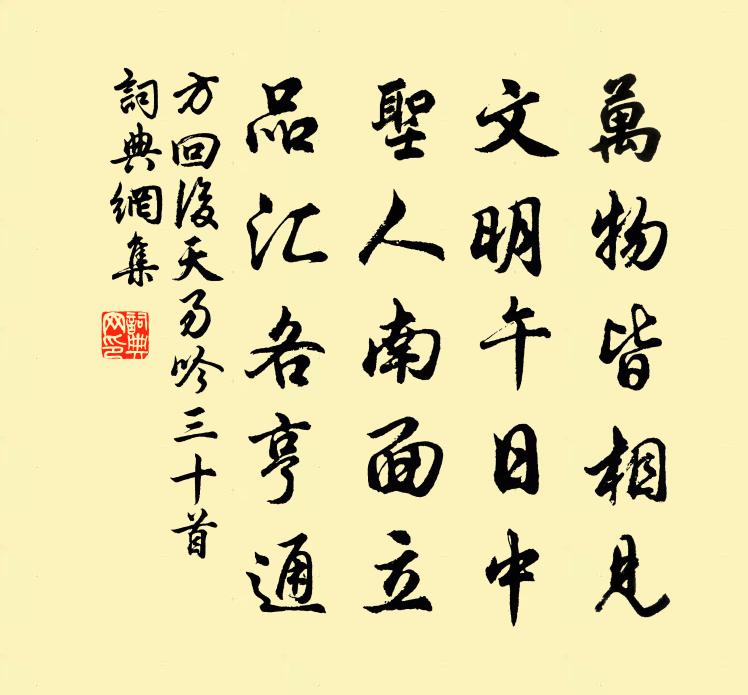 萬物皆相見
文明午日中
聖人南面立
品汇各亨通
方回後天易吟三十首
詞典網集
詞典
网印